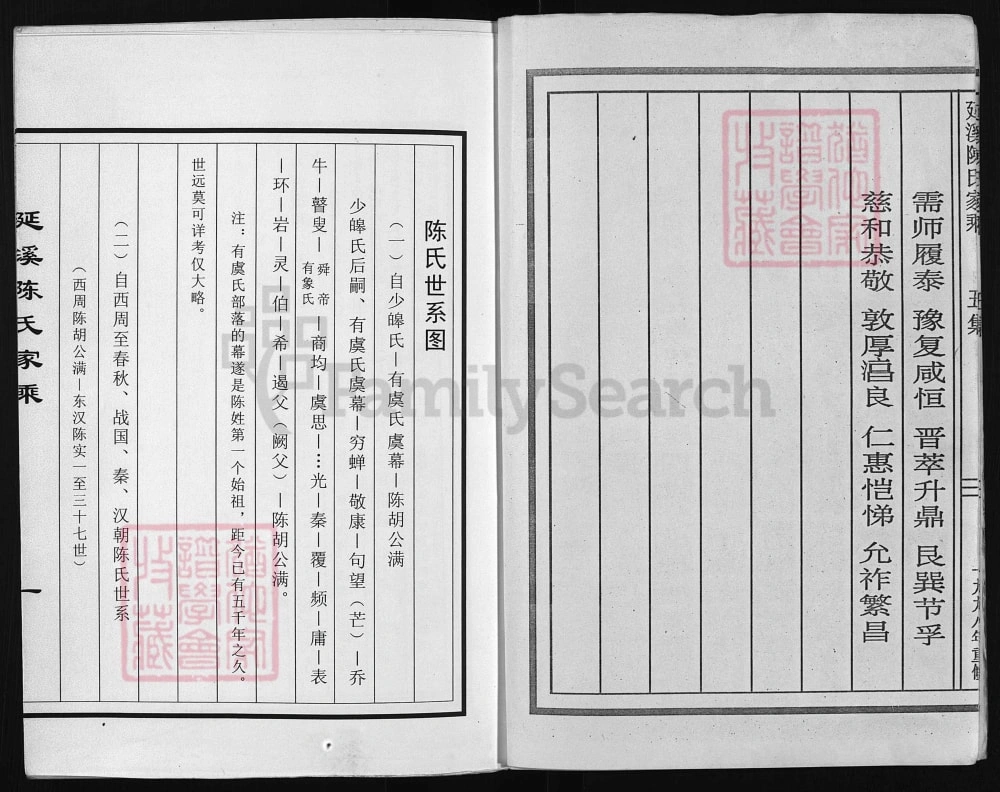 延溪陈氏家乘
五集
三
一九九八年重修
需师履泰 豫复咸恒 晋萃升鼎 艮巽节孚
慈和恭敬 敦厚温良 仁惠恺悌 允祚繁昌
陈氏世系图
（一）自少皞氏—有虞氏虞幕—陈胡公满
少皞氏后嗣、有虞氏虞幕—穷蝉—敬康—句望（芒）—乔
牛—瞽叟—舜帝 有象氏—商均—虞思—…光—秦—覆—频—庸—表
—环—岩—灵—伯—希—遏父（阙父）—陈胡公满。
注：有虞氏部落的幕遂是陈姓第一个始祖，距今已有五千年之久。
世远莫可详考仅大略。
（二）自西周至春秋、战国、秦、汉朝陈氏世系
（西周陈胡公满—东汉陈实一至三十七世）
延溪陈氏家乘
一
FamilySearch